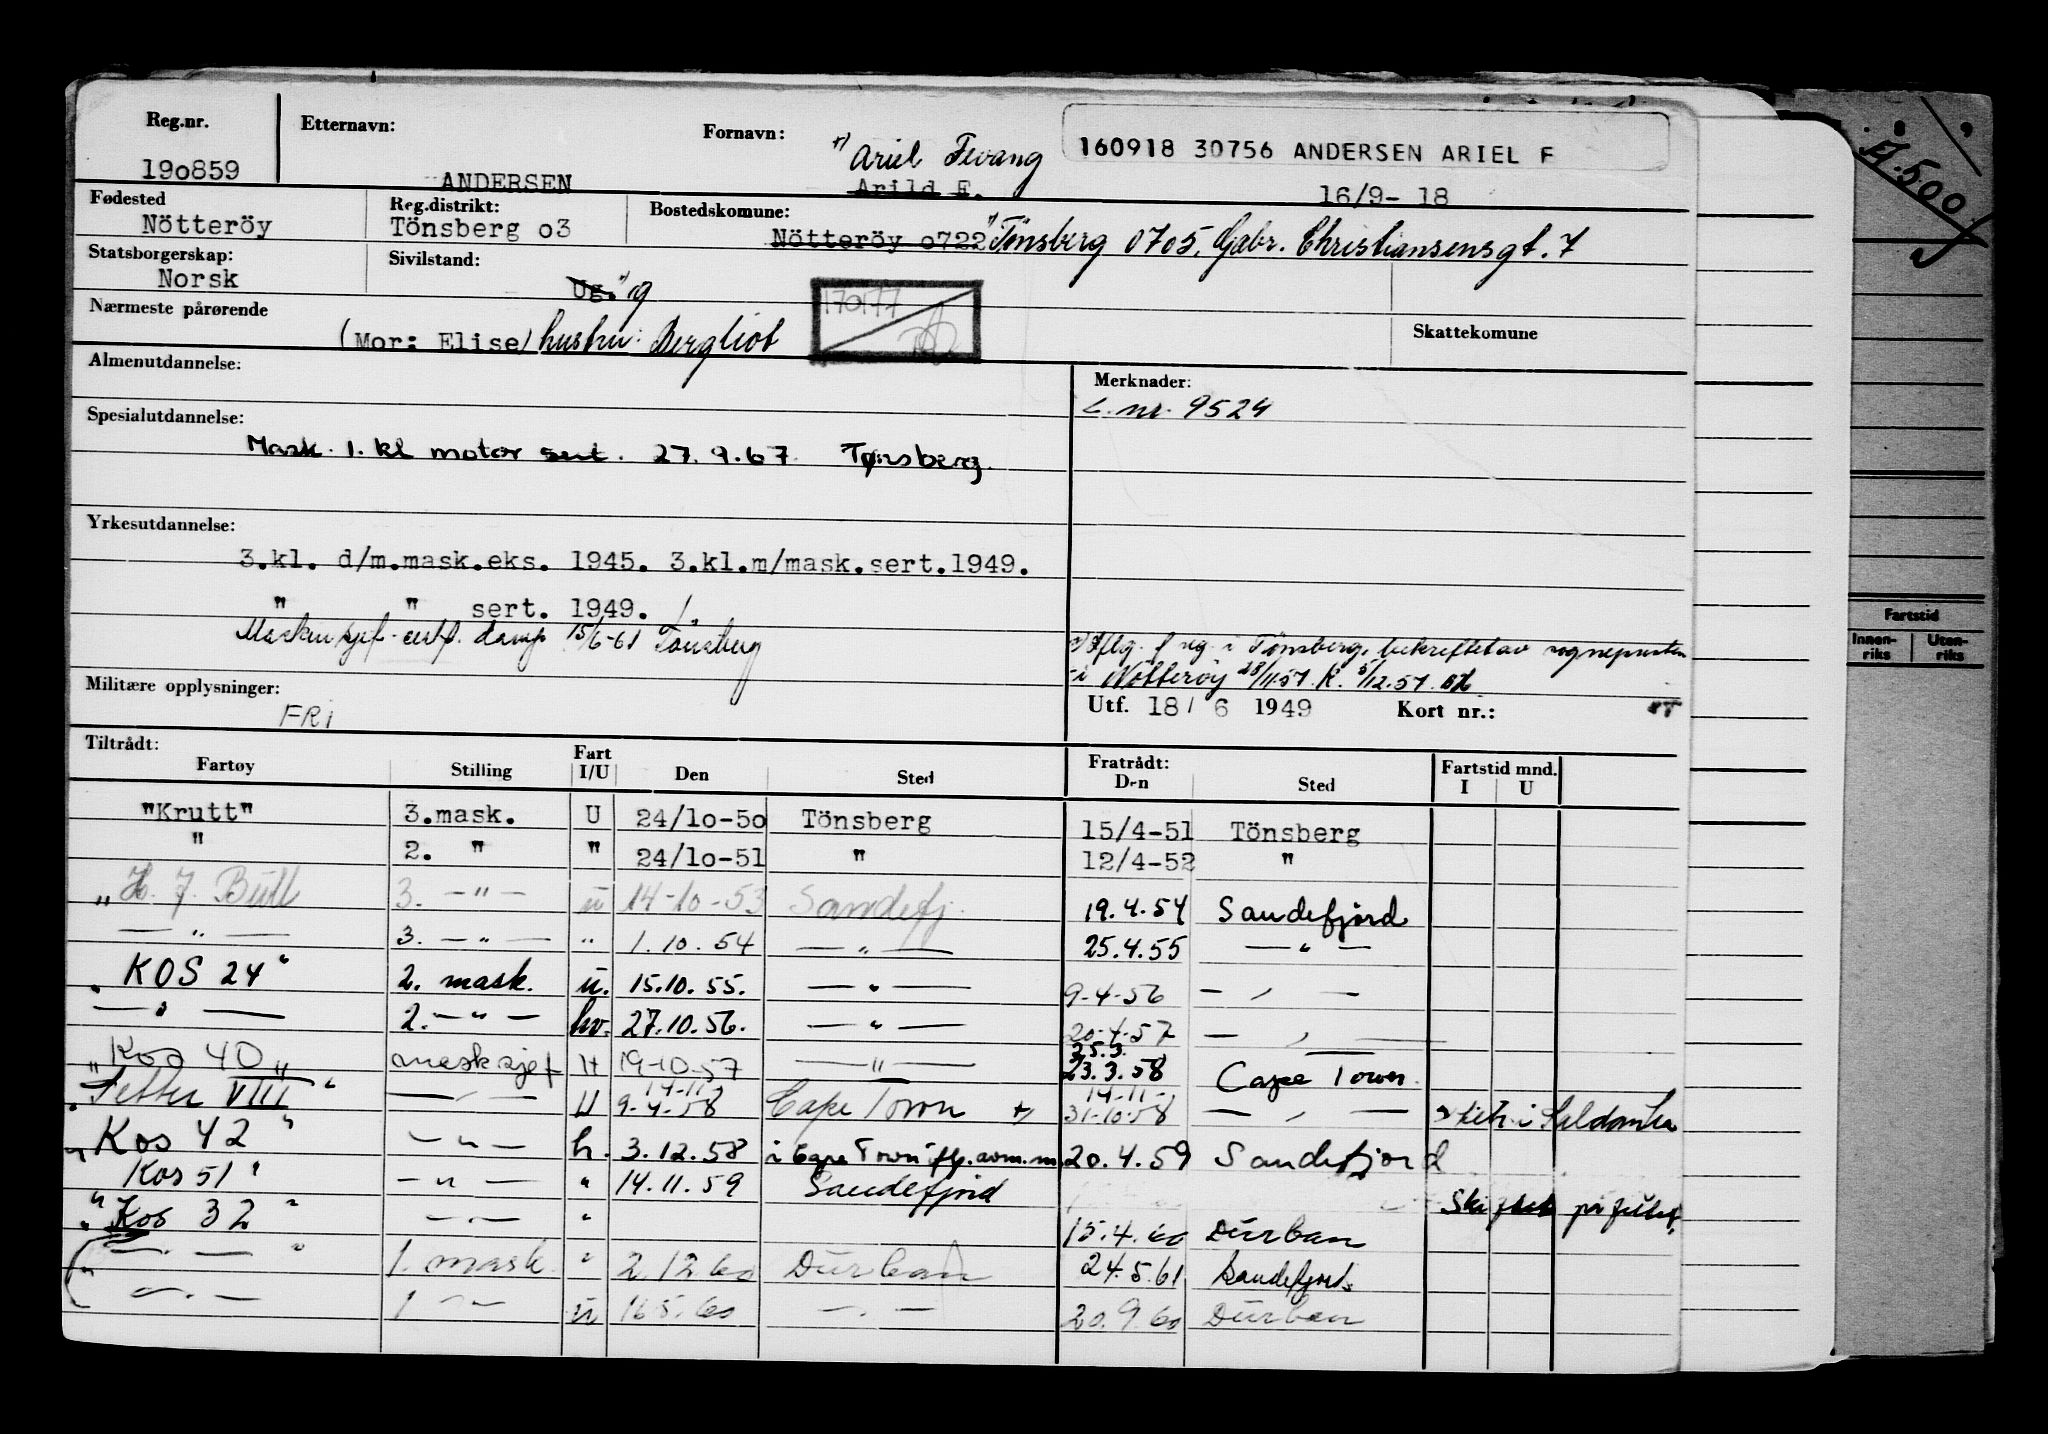 Reg.nr. Etternavn: Fornavn: x) Ariel Fevang 160918 30756 ANDERSEN ARIEL F
190859 ANDERSEN Arild F. 16/9- 18
Fødested Reg.distrikt: Bostedskomune:
Nötteröy Tönsberg o3 Nötteröy o722 Tønsberg 0705, Gabr. Christiansensgt. 7
Statsborgerskap: Sivilstand:
Norsk Ug. g
Nærmeste pårørende 170177 Skattekomune
(Mor: Elise) hustru: Bergliot
Almenutdannelse: Merknader:
L. nr. 9524
Spesialutdannelse:
Mask. 1. kl motor sert. 27.9.67 Tønsberg.
Yrkesutdannelse:
3.kl. d/m.mask.eks. 1945. 3.kl.m/mask.sert.1949.
" " sert. 1949.
Maskinsjef-cert. damp 15/6-61 Tönsberg
x) Iflg. reg. i Tønsberg, bekreftet av sognepresten
i Nötteröy 28/11.57. K. 5/12.57.
Militære opplysninger: FRI
Utf. 18/ 6 1949 Kort nr.:
Tiltrådt: Fratrådt: Fartstid mnd.
Fartøy Stilling Fart I/U Den Sted Den Sted I U
"Krutt" 3.mask. U 24/10-50 Tönsberg 15/4-51 Tönsberg
" 2. " " 24/10-51 " 12/4-52 "
"H. J. Bull 3. —"— u 14-10-53 Sandefj. 19.4.54 Sandefjord
—"— 3. —"— " 1.10.54 —"— 25.4.55 —"—
"KOS 24" 2. mask. u. 15.10.55. —"— 9-4-56 —"—
—"— 2. —"— hv. 27.10.56. —"— 20-4-57 —"—
25.3.
"Kos 40" masksjef H 19-10-57 —"— 23.3.58 Cape Town.
14-11- 14-11-
"Setter VIII" —"— U 9-4-58 Cape Town x) 31-10-58 —"— x) i Saldanha
"Kos 42" —"— h. 3.12.58 i Cape Town 20.4.59 Sandefjord
"Kos 51" —"— " 14.11.59 Sandefjord Skiftet på feltet.
"Kos 32" —"— " 15.4.60 Durban
—"— 1. mask. " 2.12.60 Durban 24.5.61 Sandefjord.
—"— 1 —"— u 16.5.60 —"— 20.9.60 Durban
A.500.
Fartstid
Innen-riks Uten-riks